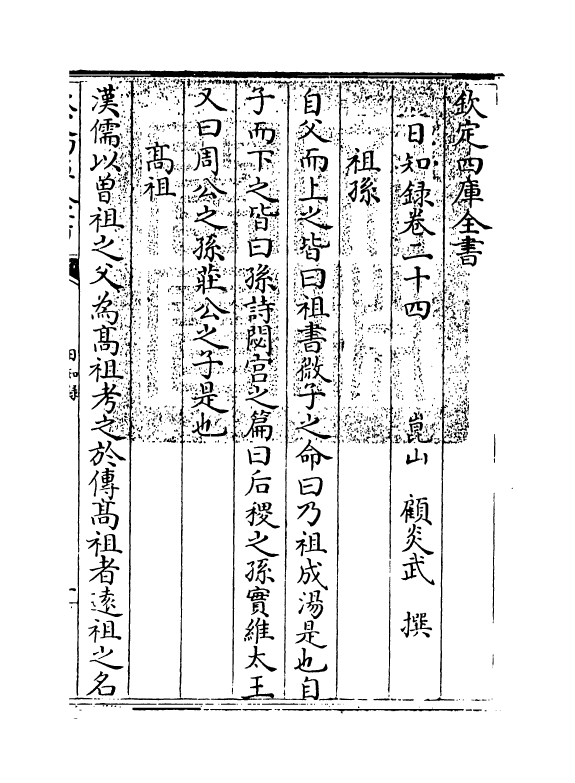 欽定四庫全書
日知録巻二十四
崑山 顧炎武 撰
祖孫
自父而上之皆曰祖書微子之命曰乃祖成湯是也自
子而下之皆曰孫詩閟宫之篇曰后稷之孫實維太王
又曰周公之孫莊公之子是也
髙祖
漢儒以曾祖之父為髙祖考之於傳髙祖者逺祖之名
日知録